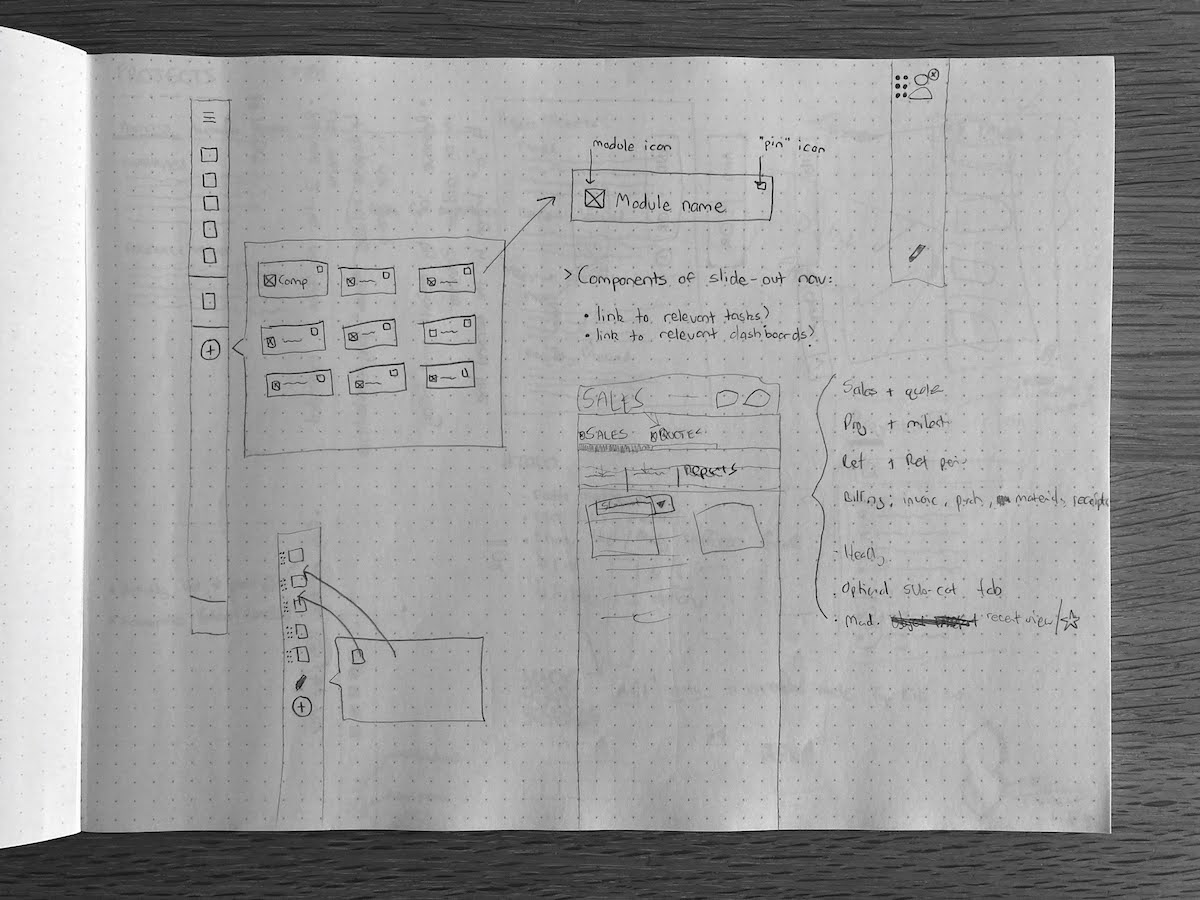 module icon
"pin" icon
Module name
Comp
> Components of slide-out nav:
• link to relevant tasks?
• link to relevant dashboards?
SALES
SALES
QUOTES
REPORTS
Sales + quote
+
Ret. + Ret
Billing: invoic, materials, receipts
Optional sub-cat tab
• Mod. recent view/☆